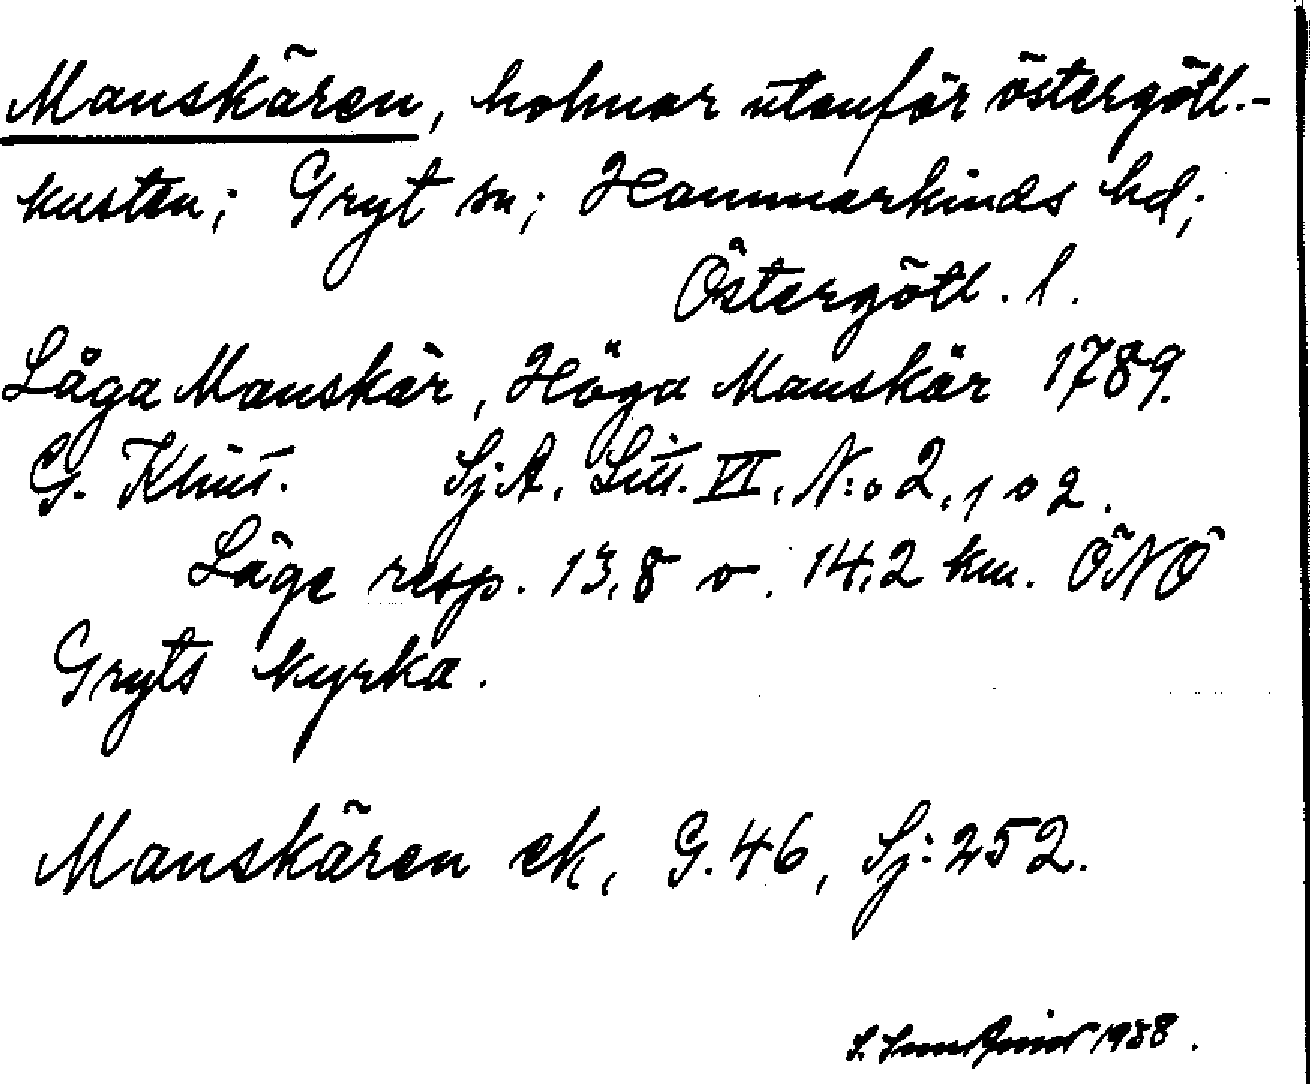 Manskären, holmar utanför östergötl.-
kusten; Gryt sn; Hammarkinds hd;
Östergötl. l.
Låga Manskär, Höga Manskär 1789.
G. Klint. Sj.A. Litt. VI. N:o 2, 1 o 2.
Läge resp. 13,8 o. 14,2 km. ÖNÖ
Gryts kyrka.
Manskären ek, G.46, Sj:252.
S. 1938.